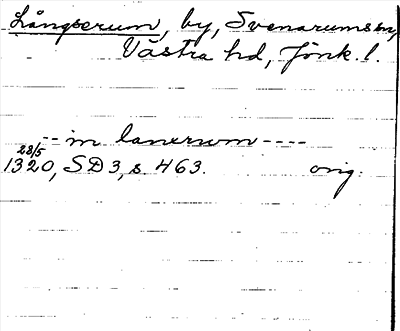 Långserum, by, Svenarums sn,
Västra hd, Jönk. l.
-- in lanxrum ----
28/5
1320, SD 3, s. 463. orig.